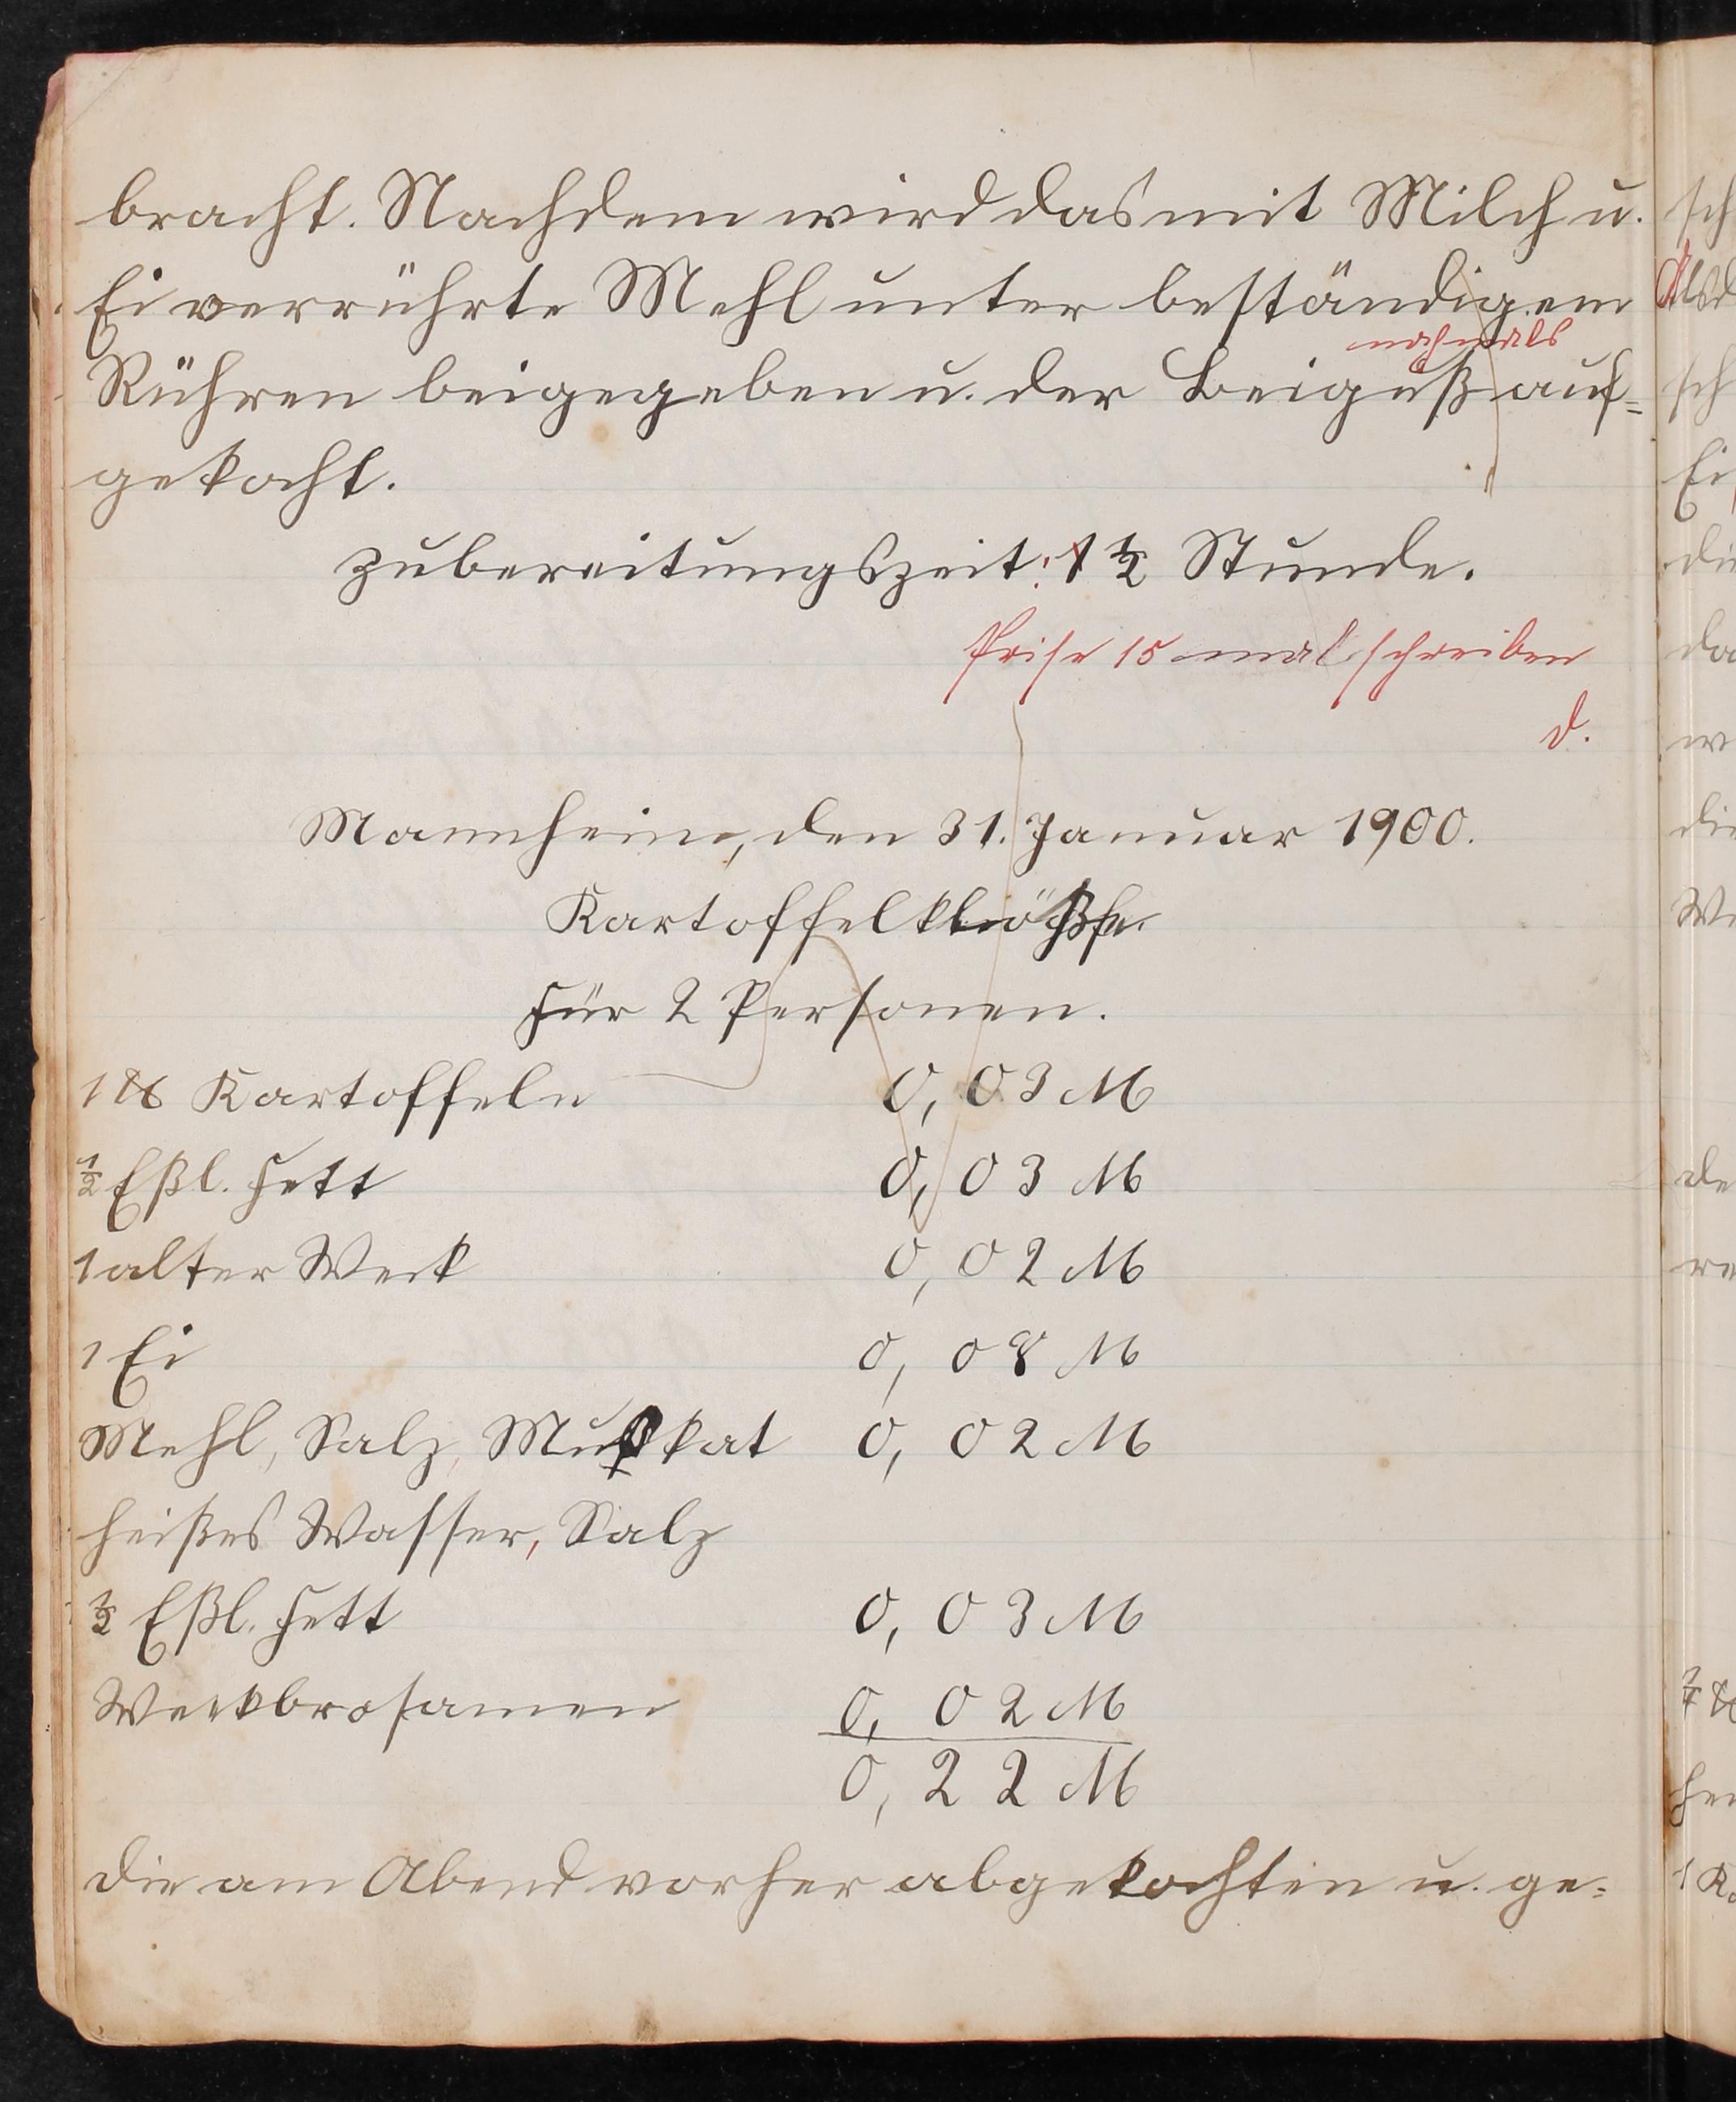 bracht. Nachdem wird das mit Milch u.
Ei verrührte Mehl unter beständigem
nochmals
Rühren beigegeben u. der Beiguß auf=
gekocht.
Zubereitungszeit: 1 ½ Stunde.
Prise 15 mal schreiben
d.
Mannheim, den 31. Januar 1900.
Kartoffelklöße
Für 2 Personen.
1 ℔ Kartoffeln 0, 03 M
½ Eßl. Fett 0, 03 M
1 alter Weck 0, 02 M
1 Ei 0, 08 M
Mehl, Salz, Muskat 0, 02 M
heißes Wasser, Salz
½ Eßl. Fett 0, 03 M
Weckbrosamen 0, 02 M
0, 22 M
Die am Abend vorher abgekochten u. ge=